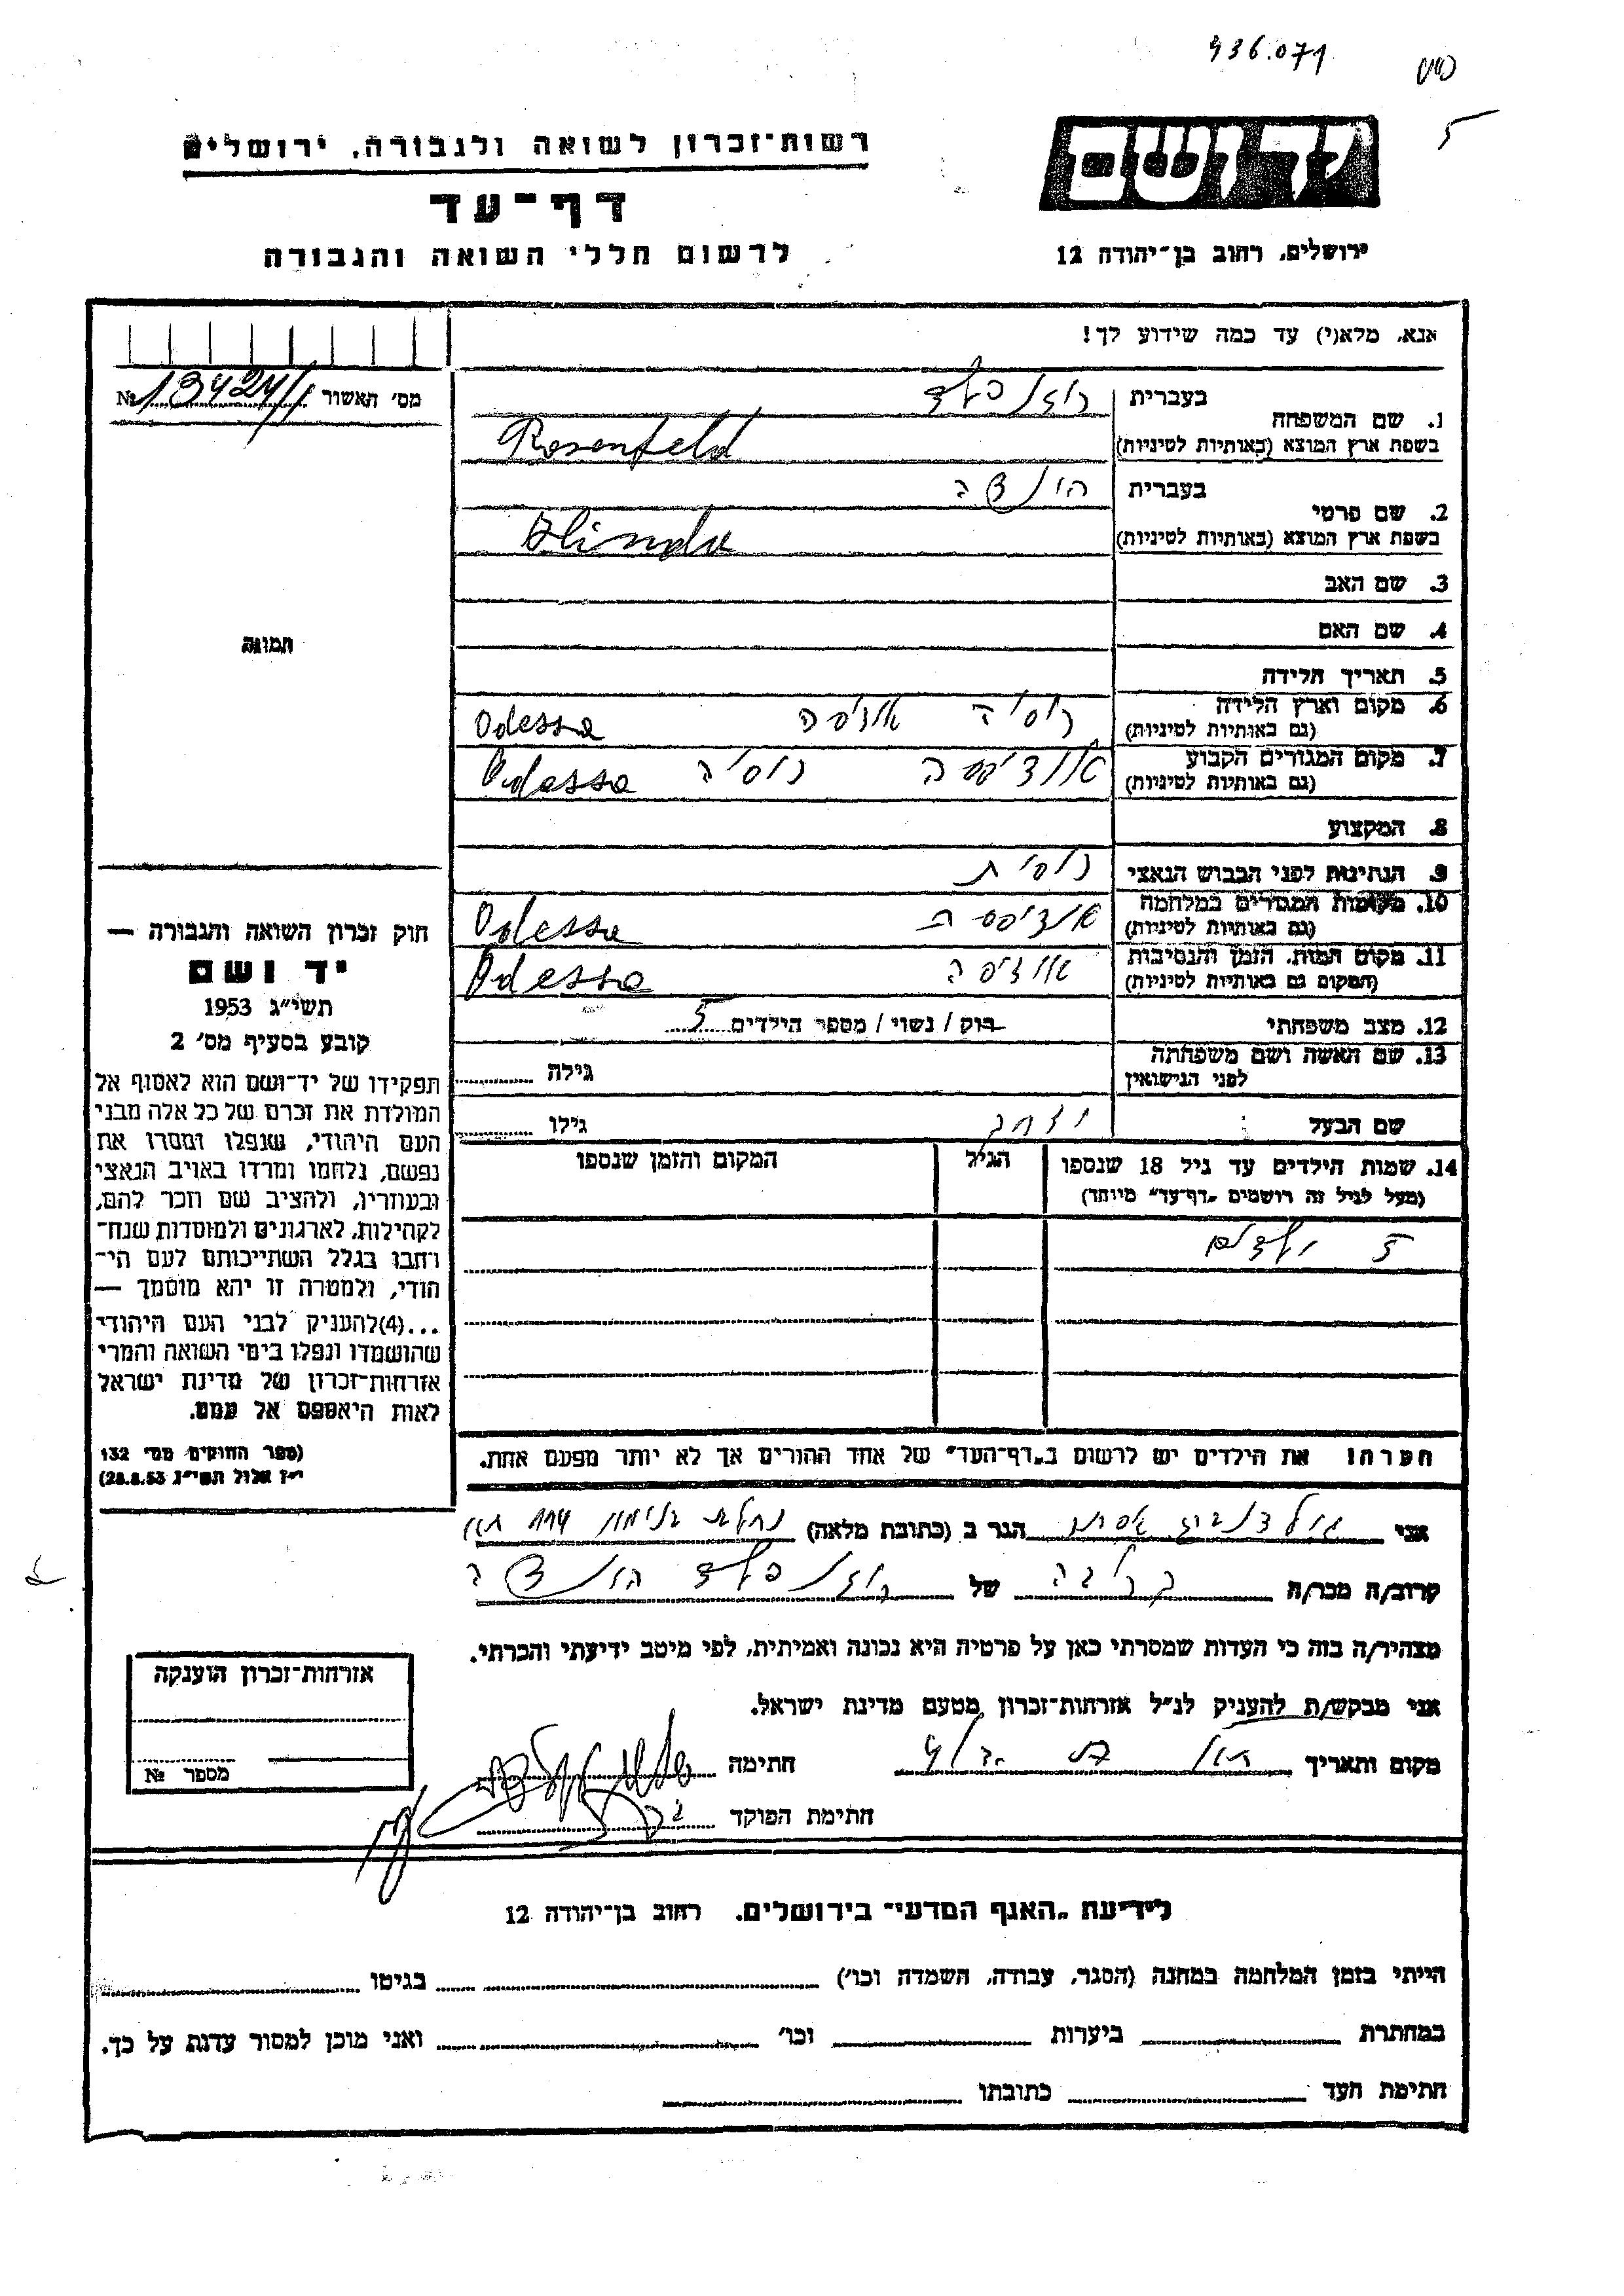 936.071
5
יד ושם
רשות־זכרון לשואה ולגבורה, ירושלים
דף־עד
לרשום חללי השואה והגבורה
ירושלים, רחוב בן־יהודה 12
אנא, מלא(י) עד כמה שידוע לך!
מס' האשור №
1. שם המשפחה
בעברית רוזנפלד
בשפת ארץ המוצא (באותיות לטיניות) Rosenfeld
2. שם פרטי
בעברית
בשפת ארץ המוצא (באותיות לטיניות)
3. שם האב
4. שם האם
5. תאריך הלידה
6. מקום וארץ הלידה
(גם באותיות לטיניות) רוסיה אודסה Odessa
7. מקום המגורים הקבוע
(גם באותיות לטיניות) אודיסה רוסיה Odessa
8. המקצוע
9. הנתינות לפני הכבוש הנאצי רוסית
10. מקומות המגורים במלחמה
(גם באותיות לטיניות) אודיסה Odessa
11. מקום המות, הזמן והנסיבות
(המקום גם באותיות לטיניות) אודיסה Odessa
12. מצב משפחתי רוק / נשוי / מספר הילדים 5
13. שם האשה ושם משפחתה
לפני הנישואין גילה
שם הבעל גילו
14. שמות הילדים עד גיל 18 שנספו הגיל המקום והזמן שנספו
(מעל לגיל זה רושמים „דף־עד" מיוחד)
5 ילדים
הערה: את הילדים יש לרשום ב„דף־העד" של אחד ההורים אך לא יותר מפעם אחת.
תמונה
חוק זכרון השואה והגבורה —
יד ושם
תשי"ג 1953
קובע בסעיף מס' 2
תפקידו של יד־ושם הוא לאסוף אל
המולדת את זכרם של כל אלה מבני
העם היהודי, שנפלו ומסרו את
נפשם, נלחמו ומרדו באויב הנאצי
ובעוזריו, ולהציב שם וזכר להם,
לקהילות, לארגונים ולמוסדות שנח־
רבו בגלל השתייכותם לעם הי־
הודי, ולמטרה זו יהא מוסמך —
...(4)להעניק לבני העם היהודי
שהושמדו ונפלו בימי השואה והמרי
אזרחות־זכרון של מדינת ישראל
לאות היאספם אל עמם.
(ספר החוקים מס' 132
י"ז אלול תשי"ג 28.8.53)
אני אסתר הגר ב (כתובת מלאה) נחלת בנימין
קרוב/ה מכר/ה קרובה של רוזנפלד
מצהיר/ה בזה כי העדות שמסרתי כאן על פרטיה היא נכונה ואמיתית, לפי מיטב ידיעתי והכרתי.
אני מבקש/ת להעניק לנ"ל אזרחות־זכרון מטעם מדינת ישראל.
מקום ותאריך חתימה
חתימת הפוקד
אזרחות־זכרון הוענקה
מספר №
לידיעת „האגף המדעי" בירושלים, רחוב בן־יהודה 12
הייתי בזמן המלחמה במחנה (הסגר, עבודה, השמדה וכו') בגיטו
במחתרת ביערות וכו' ואני מוכן למסור עדות על כך.
חתימת העד כתובתו